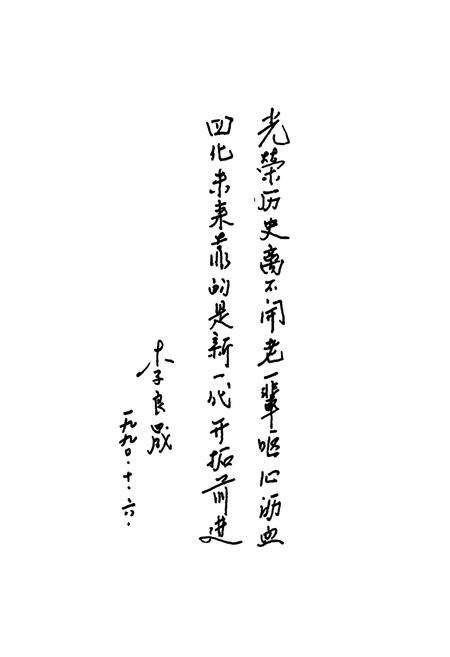 光荣历史离不开老一辈呕心沥血
四化未来靠的是新一代开拓前进
李良晟
一九九〇.十.六.